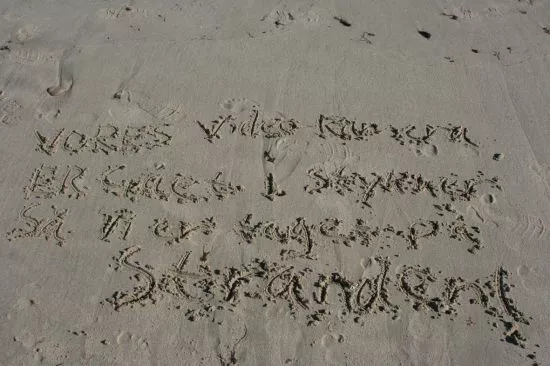 VORES Video-Kamera
ER Gået I Stykker
Så Vi er på
Stranden!